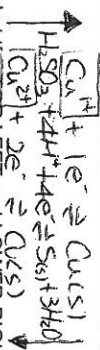 Cu¹⁺ + 1e⁻ ⇌ Cu(s)
H₂SO₃ + 4H⁺ + 4e⁻ ⇌ S(s) + 3H₂O
Cu²⁺ + 2e⁻ ⇌ Cu(s)